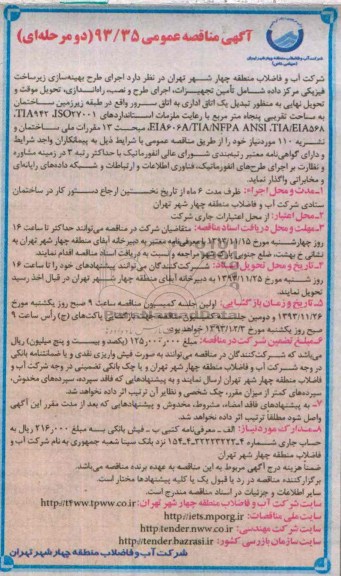 آگهی مناقصه عمومی ۹۳/۳۵ (دو مرحله‌ای)
شرکت آب و فاضلاب منطقه چهار شهر تهران
شرکت آب و فاضلاب منطقه چهار شهر تهران در نظر دارد اجرای طرح بهینه‌سازی زیرساخت
فیزیکی مرکز داده شامل تأمین تجهیزات، اجرای طرح و نصب، راه‌اندازی، تحویل موقت و
تحویل نهایی به منظور تبدیل یک اتاق اداری به اتاق سرور واقع در طبقه زیرزمین ساختمان
به مساحت تقریبی پنجاه متر مربع با رعایت ملزمات استانداردهای ISO۲۷۰۰۱، TIA۹۴۲،
TIA/EIA۵۶۸، EIA۶۰۶۸/TIA/NFPA ANSI، مبحث ۱۳ مقررات ملی ساختمان و
نشریه ۱۱۰ موردنیاز خود را از طریق مناقصه عمومی با شرایط ذیل به پیمانکاران واجد شرایط
و دارای گواهی‌نامه معتبر رتبه‌بندی شورای عالی انفورماتیک با حداکثر رتبه ۳ در زمینه مشاوره
و نظارت بر اجرای طرح‌های انفورماتیک، فناوری اطلاعات و ارتباطات و شبکه داده‌های رایانه‌ای
و مخابراتی واگذار نماید.
۱-مدت و محل اجراء: ظرف مدت ۶ ماه از تاریخ نخستین ارجاع دستور کار در ساختمان
ستادی شرکت آب و فاضلاب منطقه چهار شهر تهران
۲-محل اعتبار: از محل اعتبارات جاری شرکت
۳-مهلت و محل دریافت اسناد مناقصه: متقاضیان شرکت در مناقصه می‌توانند حداکثر تا ساعت ۱۶
روز چهارشنبه مورخ ۱۳۹۳/۱۱/۱۵ با معرفی‌نامه معتبر به دبیرخانه آبفای منطقه چهار شهر تهران به
نشانی خ بهشت، ضلع جنوبی مراجعه و نسبت به دریافت اسناد مناقصه اقدام نمایند.
۴-تاریخ و محل تحویل اسناد: شرکت‌کنندگان می‌توانند پیشنهادهای خود را تا ساعت ۱۶
روز شنبه مورخ ۱۳۹۳/۱۱/۲۵ به دبیرخانه آبفای منطقه چهار شهر تهران در قبال اخذ رسید
تحویل نمایند.
۵-تاریخ و زمان بازگشایی: اولین جلسه کمیسیون مناقصه ساعت ۹ صبح روز یکشنبه مورخ
۱۳۹۳/۱۱/۲۶ و دومین جلسه کمیسیون مناقصه جهت بازگشایی پاکت‌های (ج) رأس ساعت ۹
صبح روز یکشنبه مورخ ۱۳۹۳/۱۲/۳ خواهد بود.
۶-مبلغ تضمین شرکت در مناقصه: مبلغ ۱۲۵,۰۰۰,۰۰۰ (یکصد و بیست و پنج میلیون) ریال
می‌باشد که شرکت‌کنندگان در مناقصه می‌توانند به صورت فیش واریزی نقدی و یا ضمانتنامه بانکی
در وجه شرکت آب و فاضلاب منطقه چهار شهر تهران و یا چک بانکی تضمینی در وجه شرکت آب و
فاضلاب منطقه چهار شهر تهران ارسال نمایند و به پیشنهادهایی که فاقد سپرده، سپرده‌های مخدوش،
سپرده‌های کمتر از میزان مقرر، چک شخصی و نظایر آن ترتیب اثر داده نخواهد شد.
۷- به پیشنهادهای فاقد امضاء، مشروط، مخدوش و پیشنهادهایی که بعد از مدت مقرر این آگهی
واصل شود مطلقاً ترتیب اثر داده نخواهد شد.
۸-مدارک مورد نیاز: الف - معرفی‌نامه کتبی ب - فیش بانکی به مبلغ ۲۱۶,۰۰۰ ریال به
حساب جاری شماره نزد بانک سینا شعبه جمهوری به نام شرکت آب و
فاضلاب منطقه چهار شهر تهران
ضمناً هزینه درج آگهی مربوط به این مناقصه به عهده برنده مناقصه می‌باشد.
برگزارکننده مناقصه در رد یا قبول یک یا کلیه پیشنهادها مختار است.
سایر اطلاعات و جزئیات در اسناد مناقصه مندرج است.
سایت شرکت آب و فاضلاب منطقه چهار شهر تهران: http://t۴ww.tpww.co.ir
سایت ملی مناقصات: http://iets.mporg.ir
سایت شرکت مهندسی: http:tender.nww.co.ir
سایت سازمان بازرسی کشور: http://tender.bazrasi.ir
شرکت آب و فاضلاب منطقه چهار شهر تهران